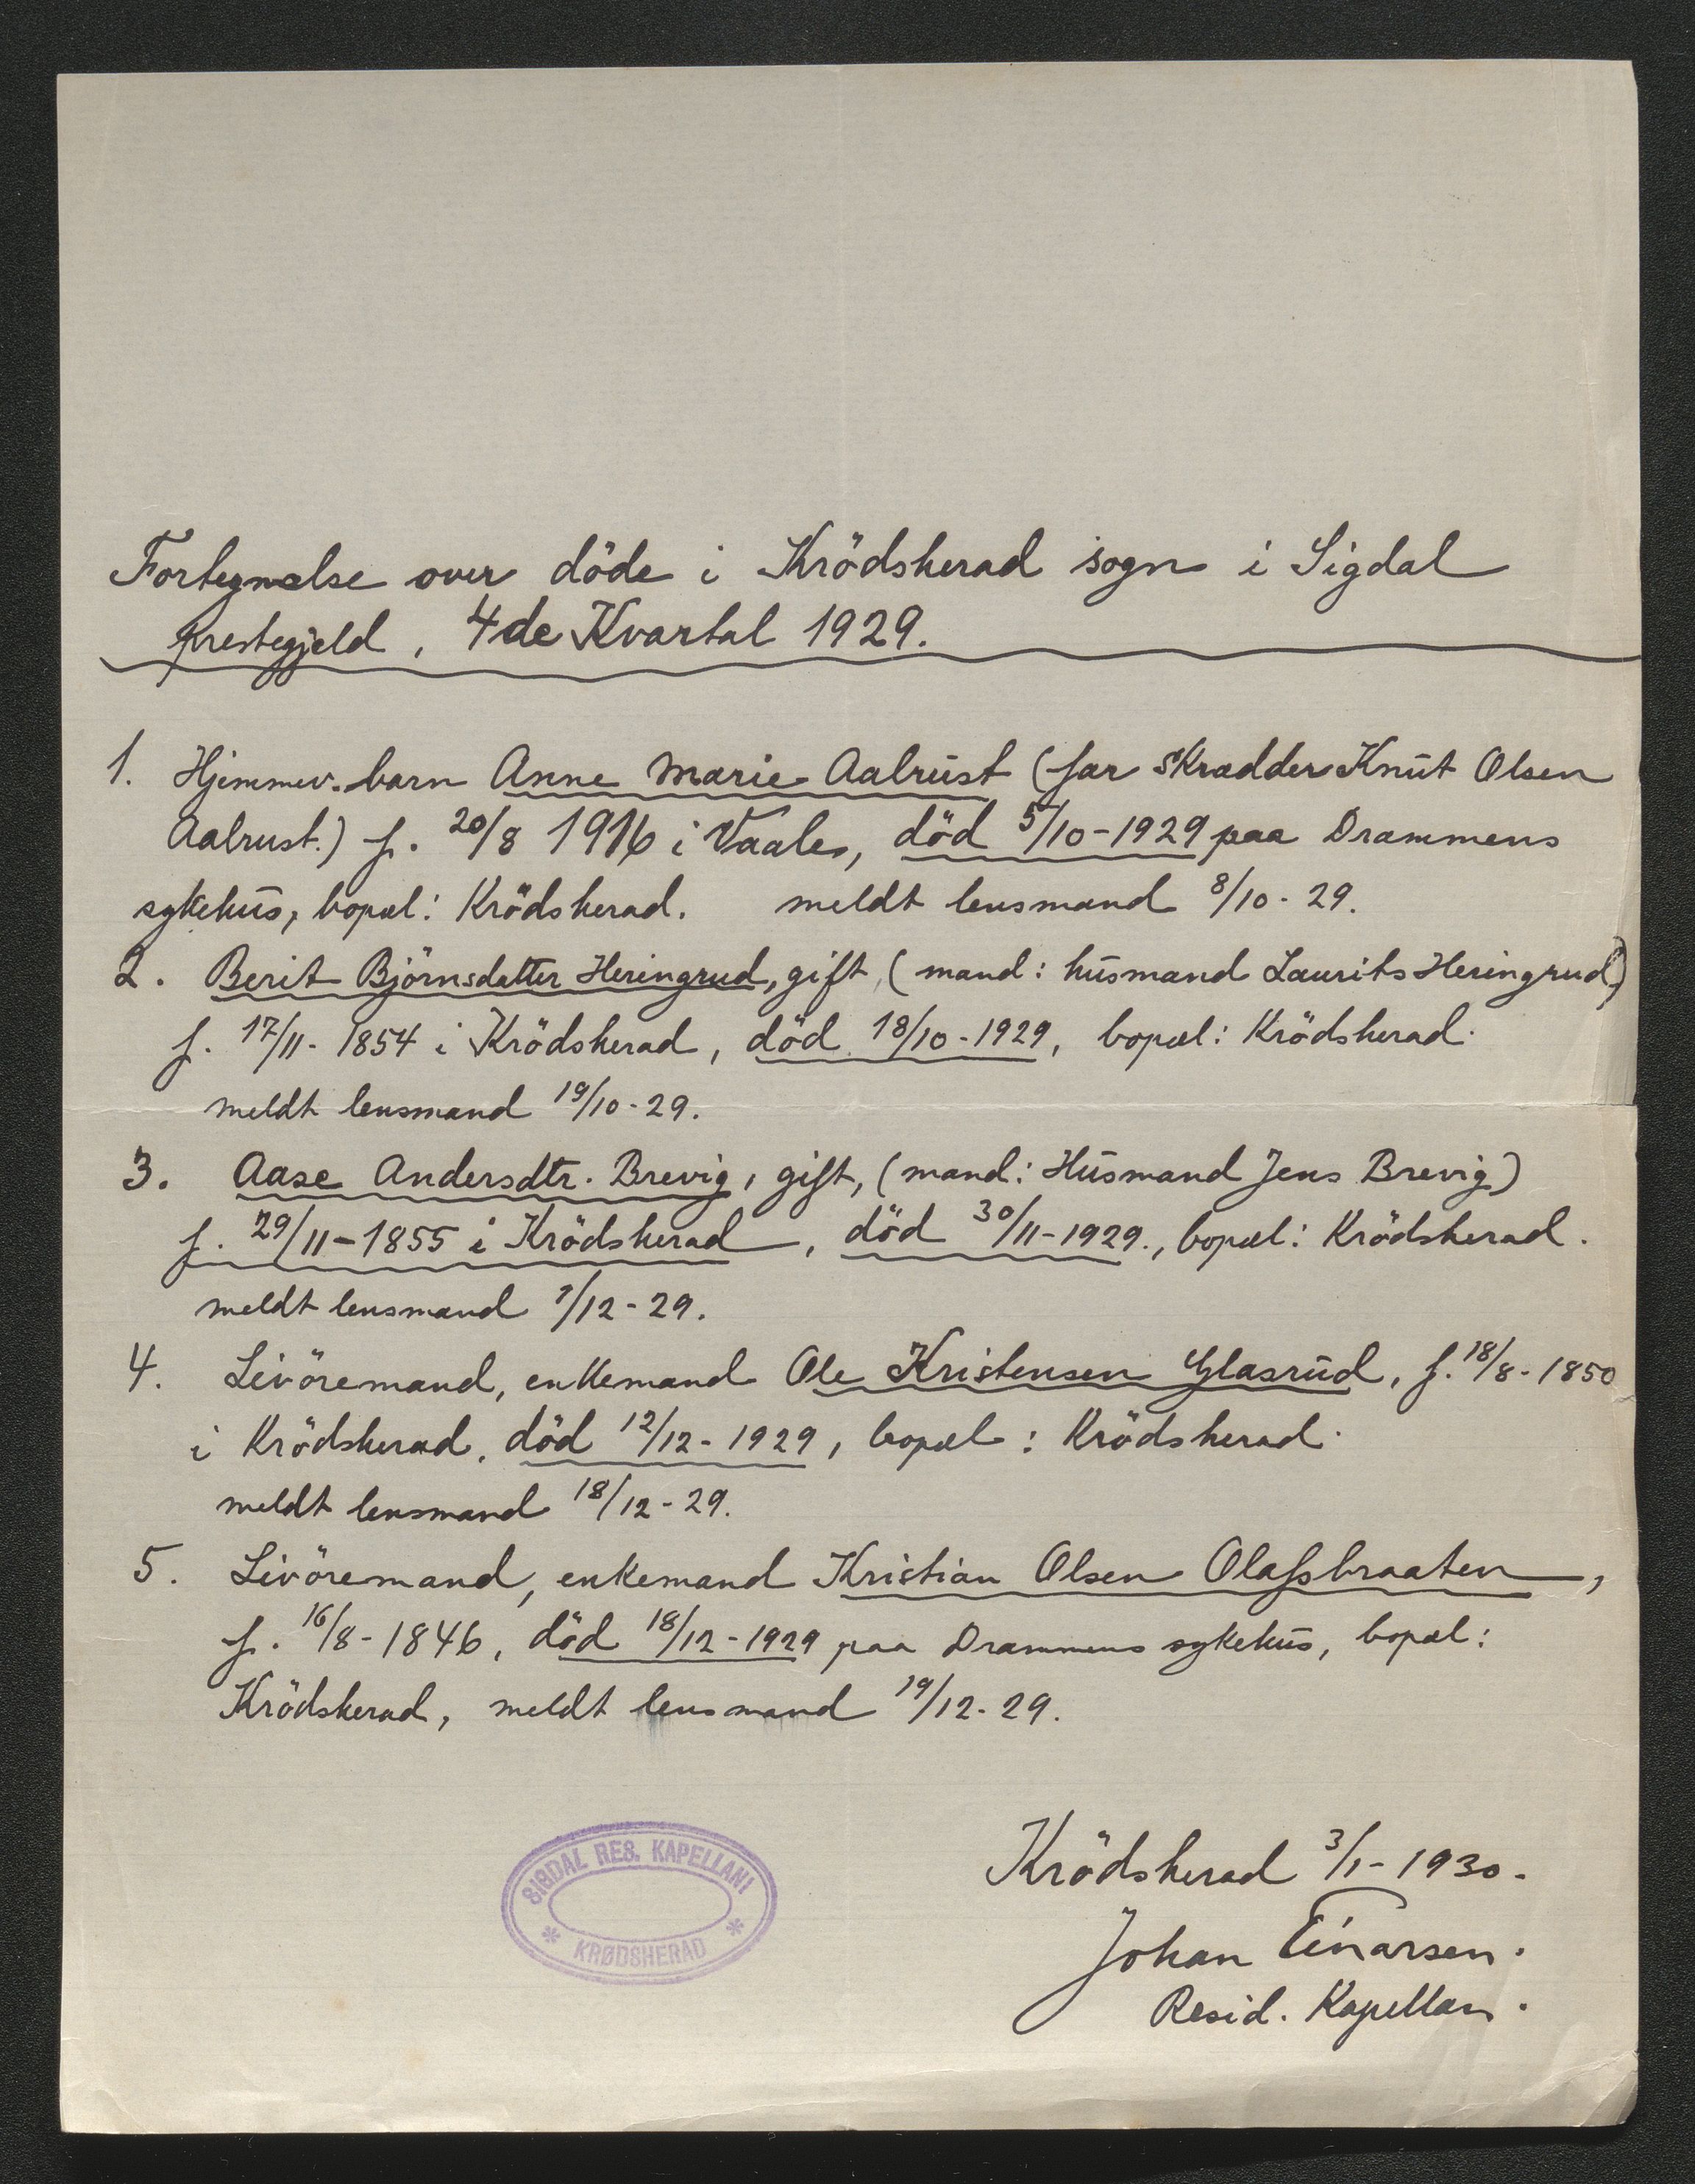 Fortegnelse over döde i Krödsherad sogn i Sigdal
prestegjeld, 4de Kvartal 1929.
1. Hjemmev. barn Anne Marie Aalrust (far skrædder Knut Olsen
Aalrust.) f. 20/8 1916 i Vaale, död 5/10-1929 paa Drammens
sykehus, bopæl: Krödsherad. meldt lensmand 8/10-29.
2. Berit Björnsdatter Heringrud, gift, (mand: husmand Laurits Heringrud)
f. 17/11-1854 i Krödsherad, död 18/10-1929, bopæl: Krödsherad.
meldt lensmand 19/10-29.
3. Aase Andersdtr. Brevig, gift, (mand: Husmand Jens Brevig)
f. 29/11-1855 i Krödsherad, död 30/11-1929., bopæl: Krödsherad.
meldt lensmand 7/12-29.
4. Livöremand, enkemand Ole Kristensen Glasrud, f. 18/8-1850
i Krödsherad, död 12/12-1929, bopæl: Krödsherad.
meldt lensmand 18/12-29.
5. Livöremand, enkemand Kristian Olsen Olafsbraaten,
f. 16/8-1846, död 18/12-1929 paa Drammens sykehus, bopæl:
Krödsherad, meldt lensmand 19/12-29.
SIGDAL RES. KAPELLANI
* KRØDSHERAD *
Krödsherad 3/1-1930.
Johan Einarsen.
Resid. Kapellan.